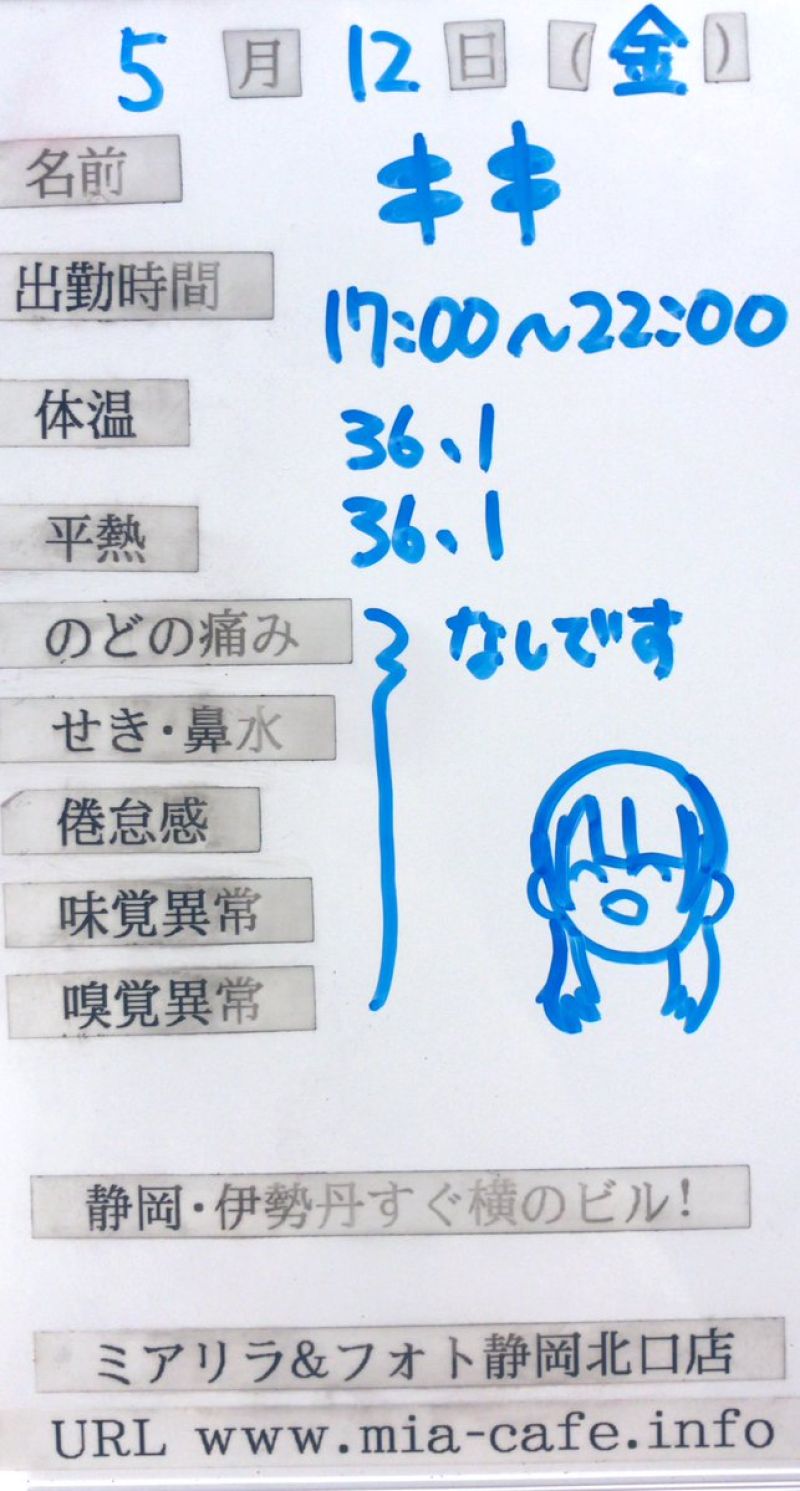 5月12日(金)
名前 キキ
出勤時間 17:00~22:00
体温 36.1
平熱 36.1
のどの痛み なしです
せき・鼻水
倦怠感
味覚異常
嗅覚異常
静岡・伊勢丹すぐ横のビル!
ミアリラ&フォト静岡北口店
URL www.mia-cafe.info